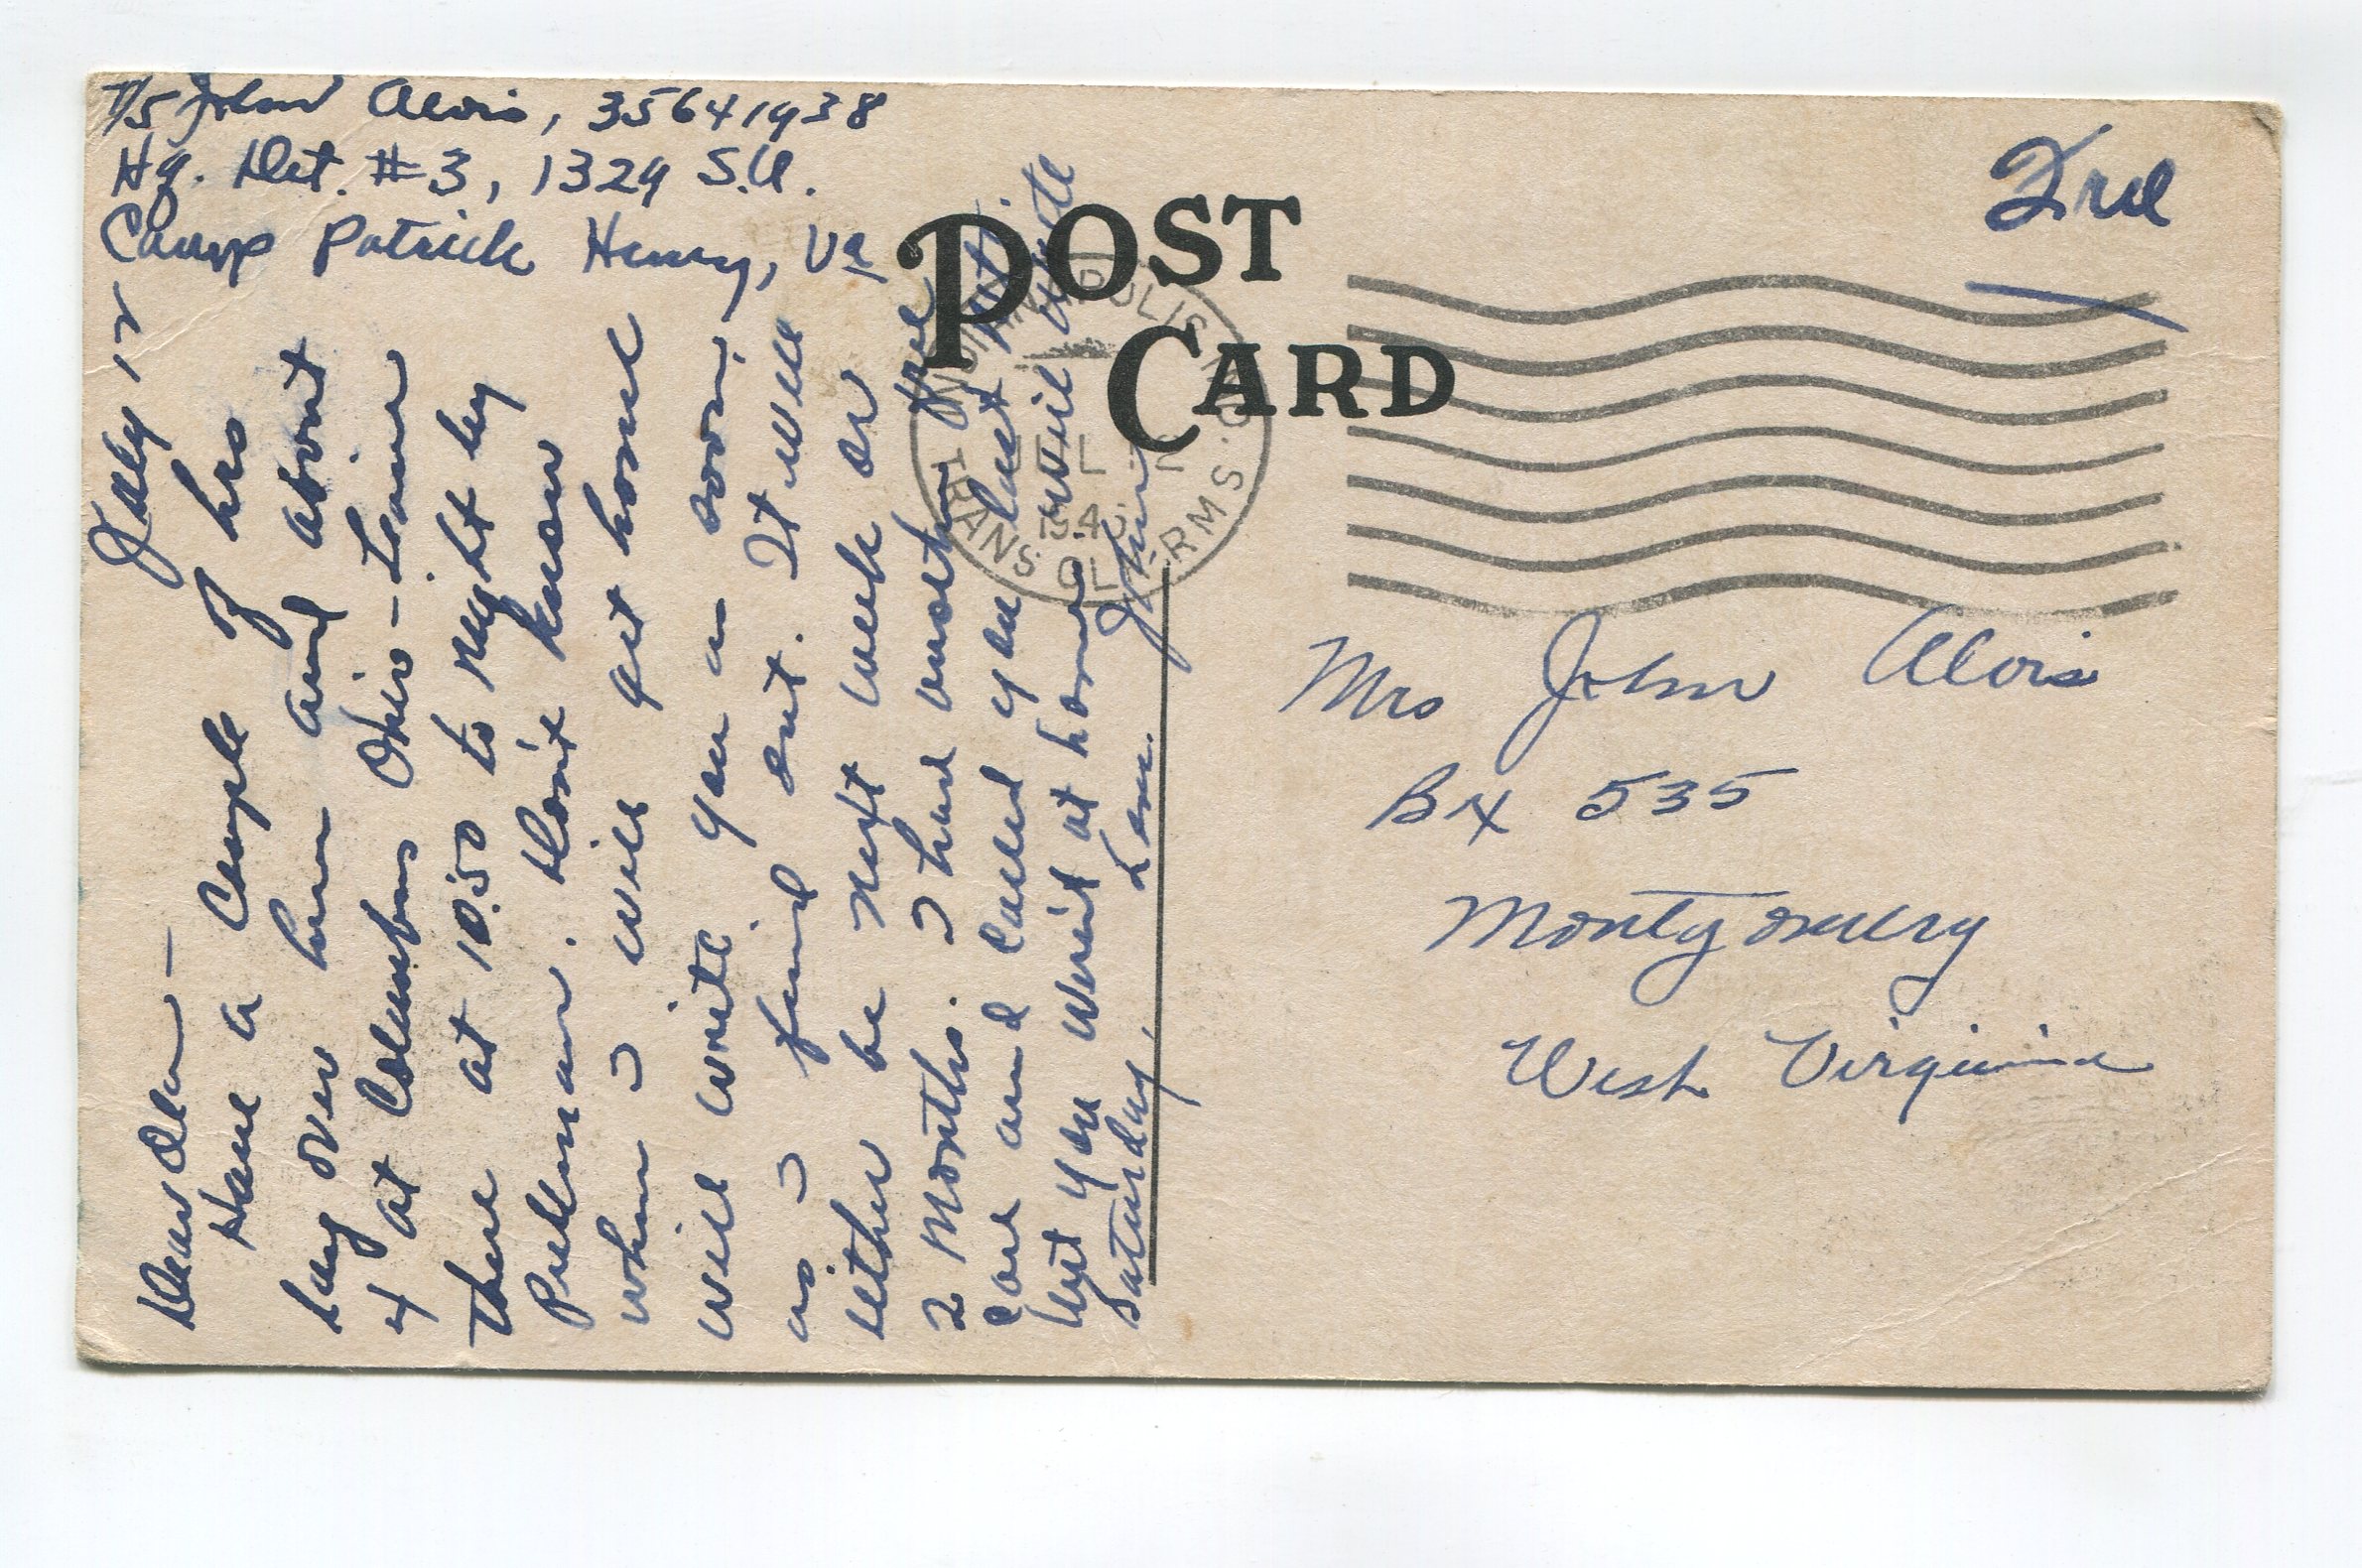 T/5 John Alois, 35641938
Hq. Det. #3, 1329 S.U.
Camp Patrick Henry, Va
July 12
Dear
Have a couple of hrs
lay over here and about
4 at Columbus Ohio - Leave
there at 10:50 to night by
Pullman. Don't know
when I will get home
will write you as soon
as I find out. It will
either be next week or
2 months. I had another free
call and called you last nit.
but you weren't at home will write
Saturday. Love John
POST
CARD
INDIANAPOLIS
TRANS. CL'K TERMS.
Free
Mrs John Alois
Bx 535
Montgomery
West Virginia